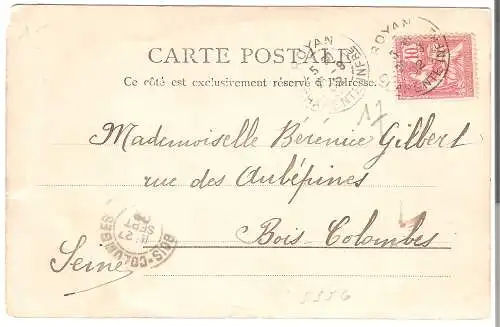 CARTE POSTALE
Ce côté est exclusivement réservé à l'adresse.
ROYAN
CHARENTE INFRE
ROYAN
10
17
Mademoiselle Bérénice Gilbert
rue des Aubépines
Bois-Colombes
Seine
BOIS-COLOMBES
27
SEPT